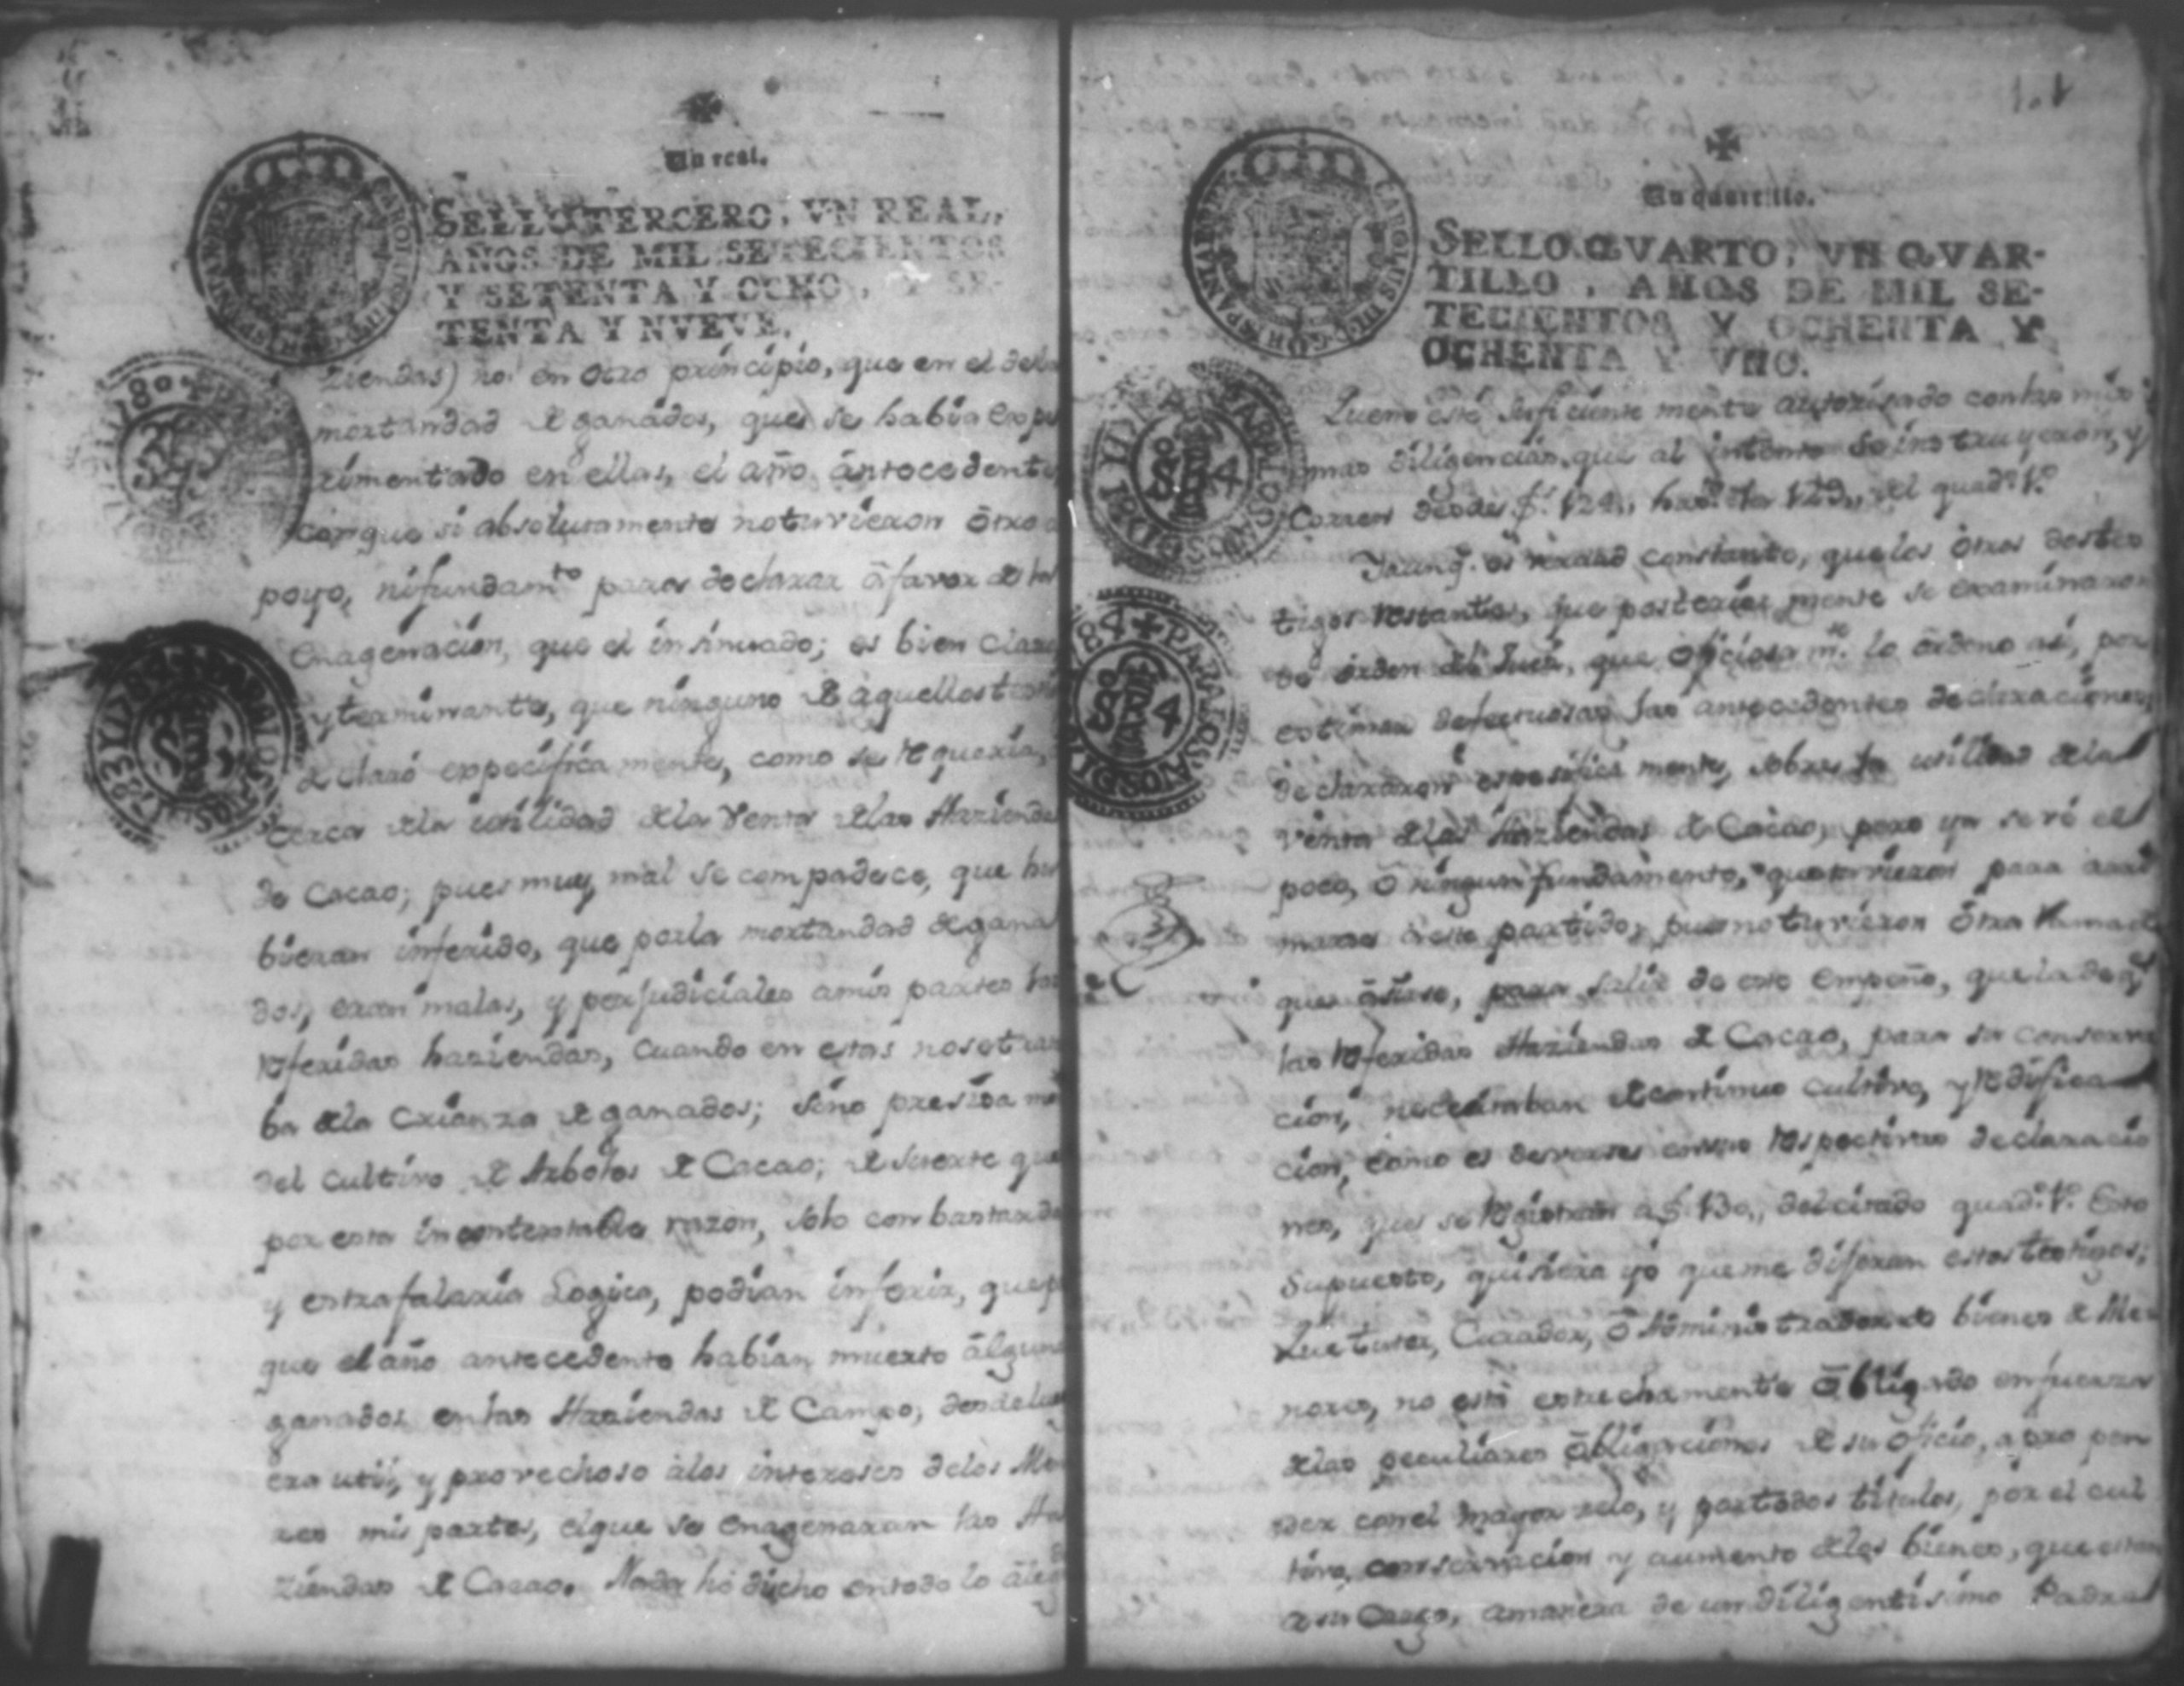 Un real.
SELLO TERCERO, VN REAL,
AÑOS DE MIL SETECIENTOS
Y SETENTA Y OCHO, Y SE-
TENTA Y NVEVE.
ziendas) no en otro principio, que en el dela
mortandad de ganados, que se habia expe
rimentado en ellas, el año antecedente,
conque si absolutamente no tuvieron otro a
poyo, ni fundamto para declarar á favor de la
enagenacion, que el insinuado; es bien claro
y terminante, que ninguno de aquellos
declaró expecificamente, como se requeria,
cerca dela utilidad dela Venta delas Hazienda
de Cacao; pues muy mal se compadece, que hu
bieran inferido, que porla mortandad de gana
dos, eran malas, y perjudiciales a mis partes
referidas haziendas, cuando en estas no se trata
ba dela crianza de ganados; sino
del cultivo de Arboles de Cacao; de suerte que
por esta incontextable razon, solo con bastarda
y extrafalaria Logica, podian inferir, que
que el año antecedente habian muerto alguno
ganados enlas Haziendas de Campo; desde
era util, y provechoso alos intereses delos Me
res mis partes, el que se enagenaran las Ha
ziendas de Cacao. Nada he dicho en todo lo
Un quartillo.
SELLO QVARTO, VN QVAR-
TILLO, AÑOS DE MIL SE-
TECIENTOS Y OCHENTA Y
OCHENTA Y VNO.
que no esté suficientemente autorizado con las mis
mas diligencias, que al intento se instruyeron, y
Corren desde f. 124,, hasta 129,, del quad.o 1.o
Y aunq.e es verdad constante, que los otros dos tes
tigos restantes, que posteriormente se examinaron
de orden del Juez, que oficiosam.te lo ordenó así, por
estimar defectuosas las antecedentes declaraciones,
declararon especificamente, sobre la utilidad dela
venta delas Haziendas de Cacao; pero ya se vé el
poco, ó ningun fundamento, que tuvieron para
marse á este partido, pues no tuvieron otra
que asirse, para salir de este empeño, que la de q.e
las referidas Haziendas de Cacao, para su conserva
cion, necesitaban de continuo cultivo, y redifica
cion, como es de verse en sus respectivas declaracio
nes, que se registran a f. 130,, del citado quad.o 1.o Esto
Supuesto, quisiera yo que me dixeran estos testigos;
Que tutor, Curador, ó Administrador de bienes de Me
nores, no está estrechamente obligado en fuerza
delas peculiares obligaciones de su oficio, a pro pen
der con el mayor zelo, y por todos titulos, por el cul
tivo, conservacion y aumento delos bienes, que estan
a su Cargo, a manera de un diligentisimo Padre